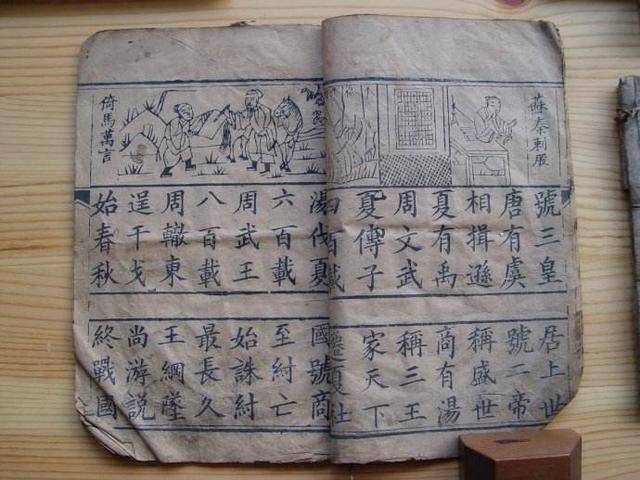 蘇秦刺股
號三皇
居上世
唐有虞
號二帝
相揖遜
稱盛世
夏有禹
商有湯
周文武
稱三王
夏傳子
家天下
四百載
遷夏社
倚馬萬言
湯伐夏
國號商
六百載
至紂亡
周武王
始誅紂
八百載
最長久
周轍東
王綱墜
逞干戈
尚游說
始春秋
終戰國